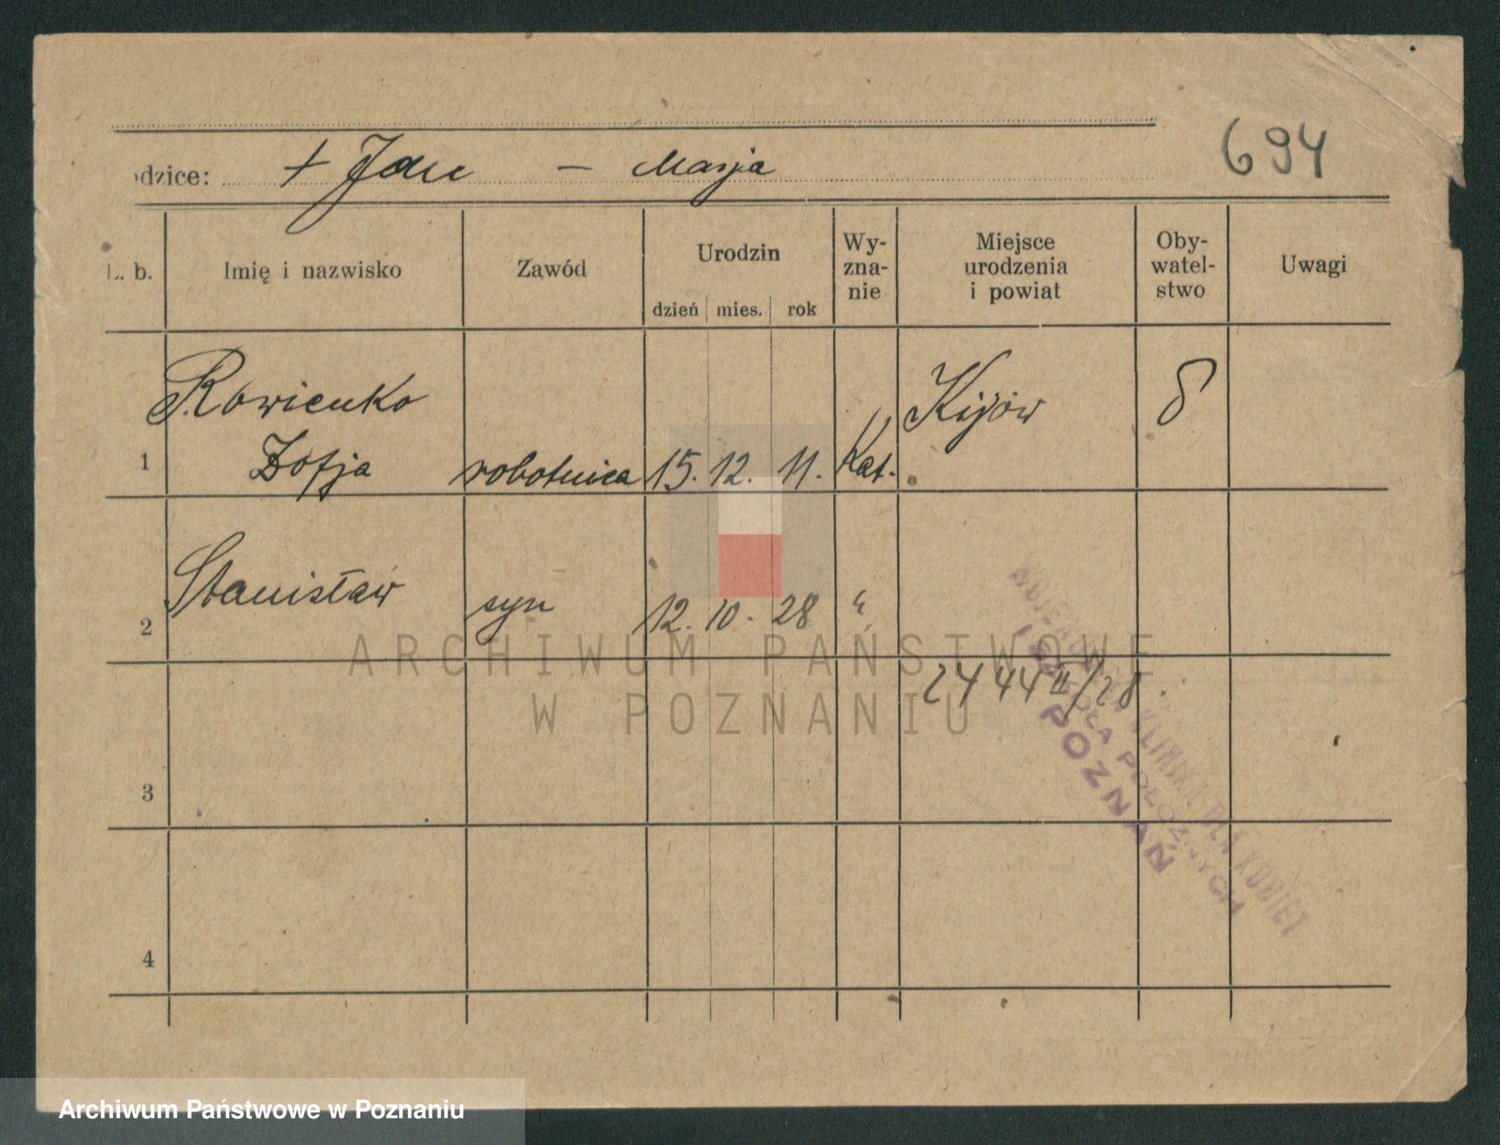 694
odzice: + Jan — Marja
L. b.
Imię i nazwisko
Zawód
Urodzin
dzień mies. rok
Wy-
zna-
nie
Miejsce
urodzenia
i powiat
Oby-
watel-
stwo
Uwagi
Rowienko
Kijów
1 Zofja robotnica 15. 12. 11. Kat.
Stanisław
2 syn 12. 10. 28 "
2444 II/28
3
4
KLINIKA DLA KOBIET
I SZKOŁA POŁOŻNYCH
POZNAŃ
ARCHIWUM PAŃSTWOWE
W POZNANIU
Archiwum Państwowe w Poznaniu